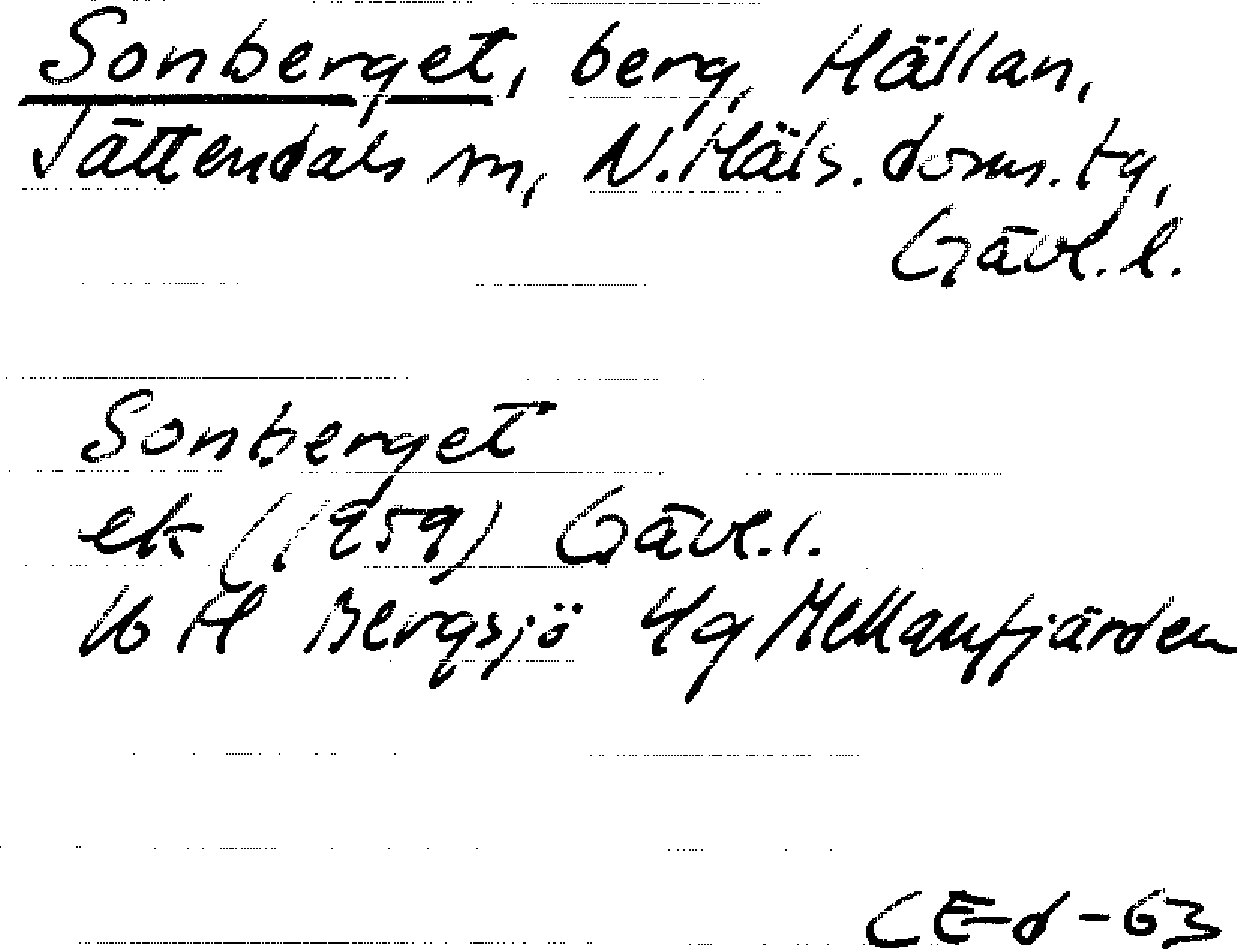 Sonberget, berg, Hällan,
Jättendals sn, N. Häls. doms. tg,
Gävl. l.
Sonberget
ek (1959) Gävl. l.
16 H Bergsjö 4g Mellanfjärden
CEd-63